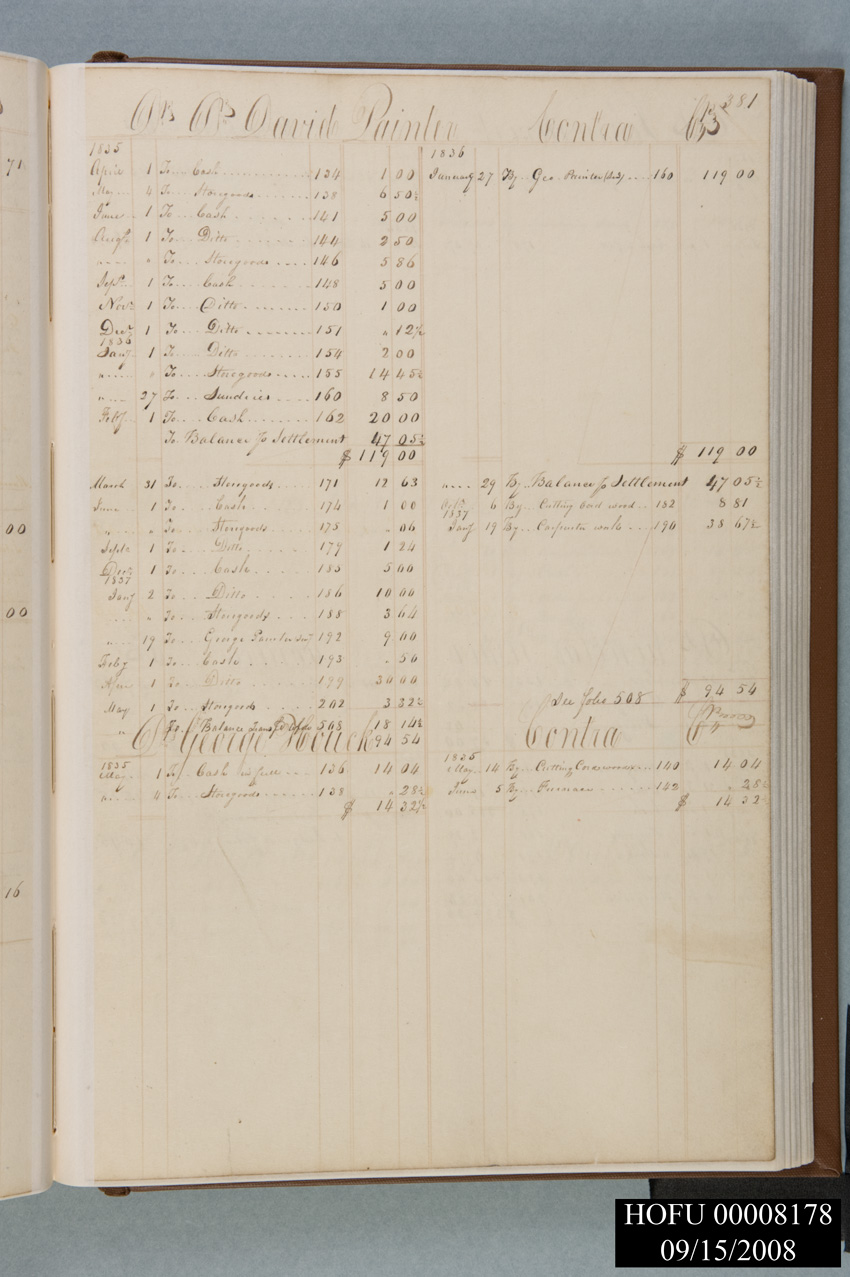 381
Dr David Painter Contra Cr
1835 1836
April 1 To Cash 134 1 00 January 27 By Geo Painter 160 119 00
May 4 To Storegoods 138 6 50½
June 1 To Cash 141 5 00
Augt 1 To Ditto 144 2 50
" " To Storegoods 146 5 86
Sept 1 To Cash 148 5 00
Novr 1 To Ditto 150 1 00
Decr 1 To Ditto 151 " 12½
1836
Jany 1 To Ditto 154 2 00
" " To Storegoods 155 14 45½
" 27 To Sundries 160 8 50
Feby 1 To Cash 162 20 00
To Balance Settlement 47 05½
$ 119 00 $ 119 00
March 31 To Storegoods 171 12 63 " 29 By Balance Settlement 47 05½
June 1 To Cash 174 1 00 6 By Cutting Cord wood 182 8 81
" " To Storegoods 175 " 06 1837 Jany 19 By Carpenter work 190 38 67½
Septr 1 To Ditto 179 1 24
Decr 1 To Cash 185 5 00
1837
Jany 2 To Ditto 186 10 00
" " To Storegoods 188 3 64
" 19 To George Painter 192 9 00
Feby 1 To Cash 193 " 50
1 To Ditto 199 30 00
May 1 To Storegoods 202 3 32½ See folio 508 $ 94 54
" To Balance 508 18 14½
94 54
Dr George Houck Contra Cr
1835 1835
May 1 To Cash in full 136 14 04 May 14 By Cutting Cordwood 140 14 04
" 4 To Storegoods 138 " 28½ June 5 By Furnace 142 " 28½
$ 14 32½ $ 14 32½
71
00
00
16
HOFU 00008178
09/15/2008